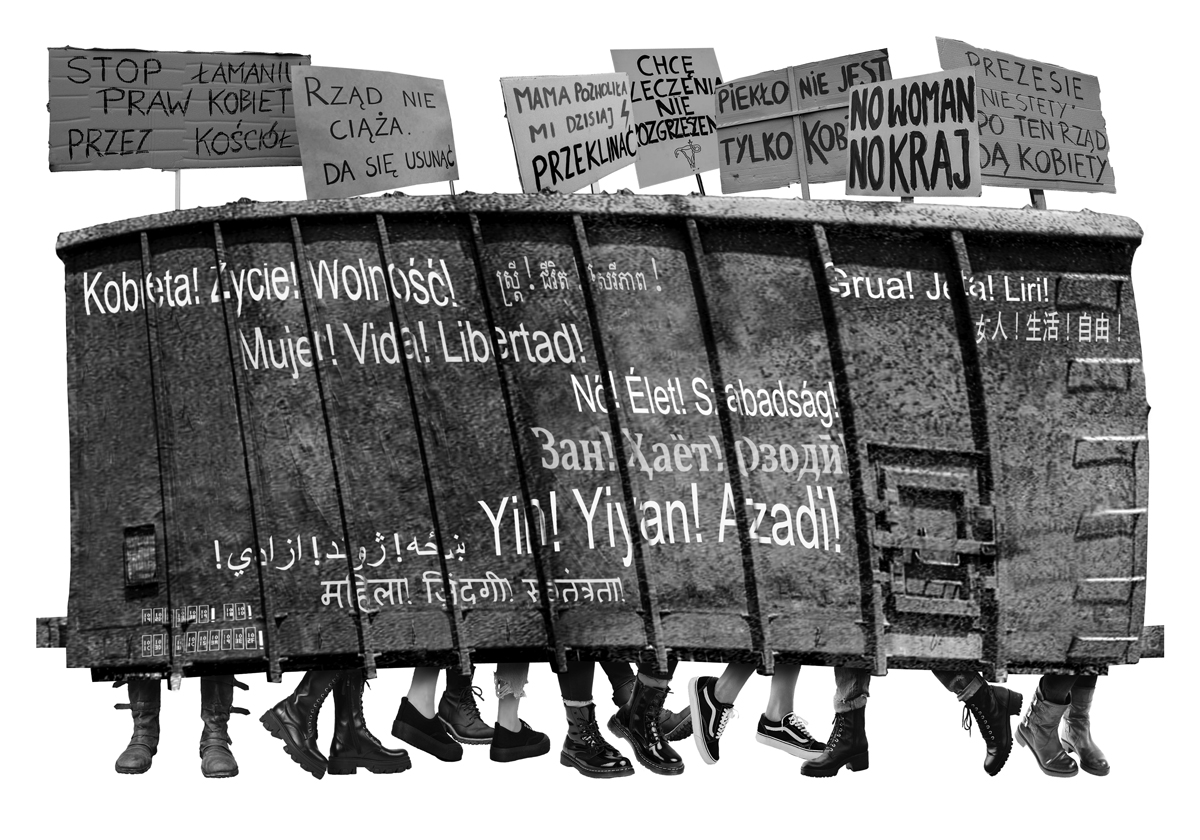 STOP ŁAMANIU
PRAW KOBIET
PRZEZ KOŚCIÓŁ
RZĄD NIE
CIĄŻA.
DA SIĘ USUNĄĆ
MAMA POZWOLIŁA
MI DZISIAJ
PRZEKLINAĆ
CHCĘ
LECZENIA
NIE
ROZGRZESZEN
PIEKŁO NIE JEST
TYLKO KOB
NO WOMAN
NO KRAJ
PREZESIE
NIESTETY
PO TEN RZĄD
DĄ KOBIETY
Kobieta! Życie! Wolność!
ស្ត្រី! ជីវិត! សេរីភាព!
Grua! Jeta! Liri!
女人！生活！自由！
Mujer! Vida! Libertad!
Nő! Élet! Szabadság!
Зан! Ҳаёт! Озодӣ!
Yin! Yiyan! Azadi!
ښځه! ژوند! ازادي!
महिला! जिंदगी! स्वतंत्रता!